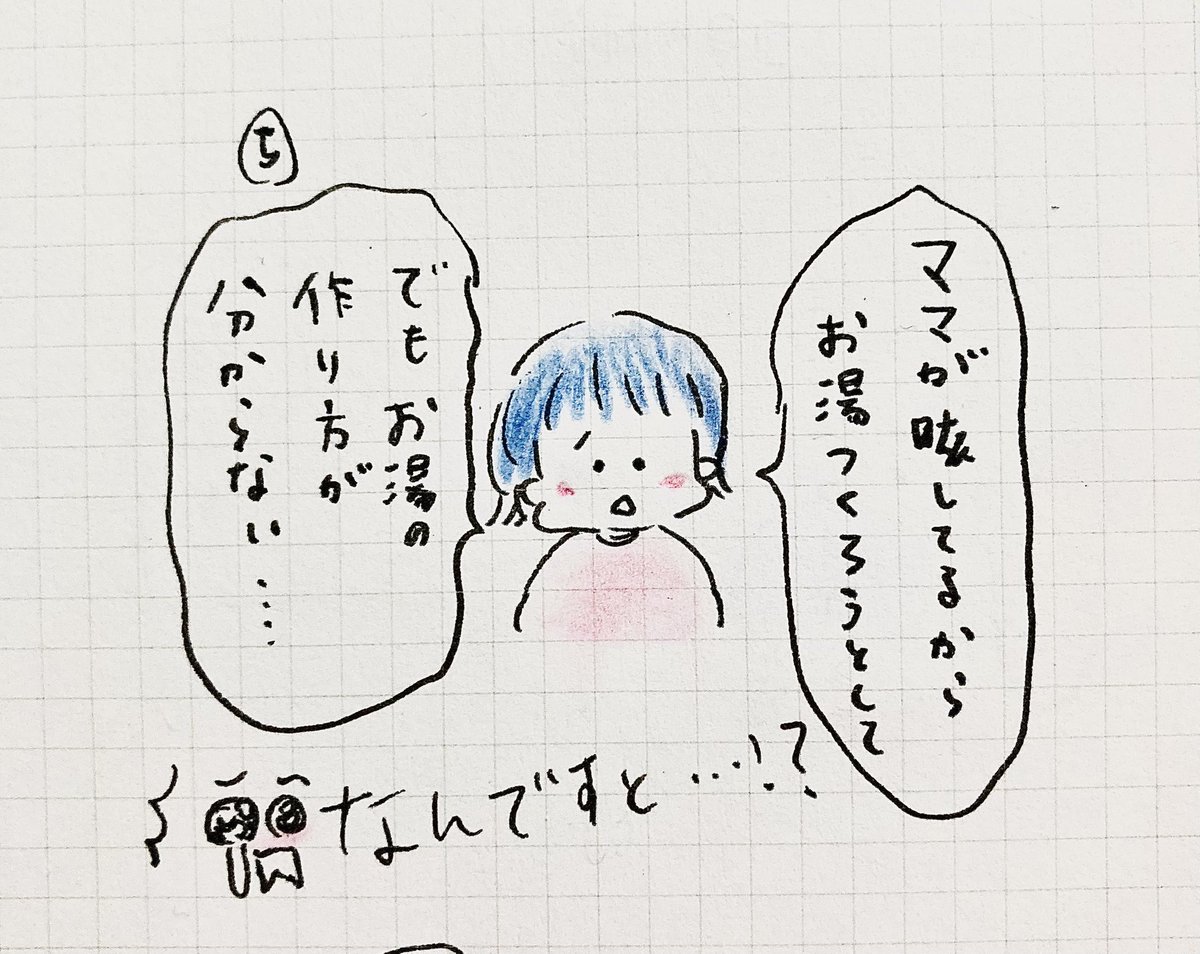 ママが咳してるから
お湯つくろうとして
ち
でもお湯の
作り方が
分からない…
なんですと…!?